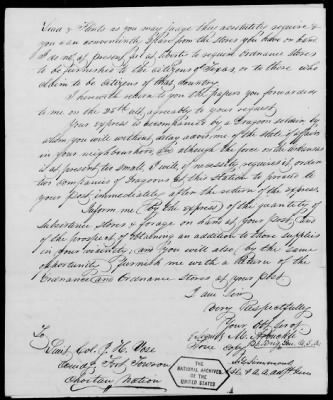 Lead & Flints as you may judge their necessities require &
you can conveniently spare from the stores you have on hand.
I do not, at present, feel at liberty to require ordnance stores
to be furnished to the citizens of Texas, or to those who
claim to be citizens of that country.
I herewith return to you the papers you forwarded
to me on the 25th ult. agreeably to your request.
Your express is accompanied by a Dragoon soldier, by
whom you will without delay advise me of the state of affairs
in your neighbourhood, and although the force on the
is at present too small, I will, if necessity requires it, order
two companies of Dragoons at this Station to proceed to
your post immediately after the return of the express.
Inform me (by the express) of the quantity of
Subsistence stores & forage on hand at your post, and
of the prospect of obtaining an addition to those supplies
in your vicinity; and you will also, by the same
opportunity furnish me with a Return of the
Ordnance and Ordnance stores at your post
I am Sir,
Very Respectfully
Your Obt Servt
M. Arbuckle
True Copy Bt. Brig. Gen. U.S.A.
Simmons
To
Lieut Col. J. H. Vose
Comdg Fort Towson
Choctaw Nation
THE
NATIONAL ARCHIVES
OF THE
UNITED STATES